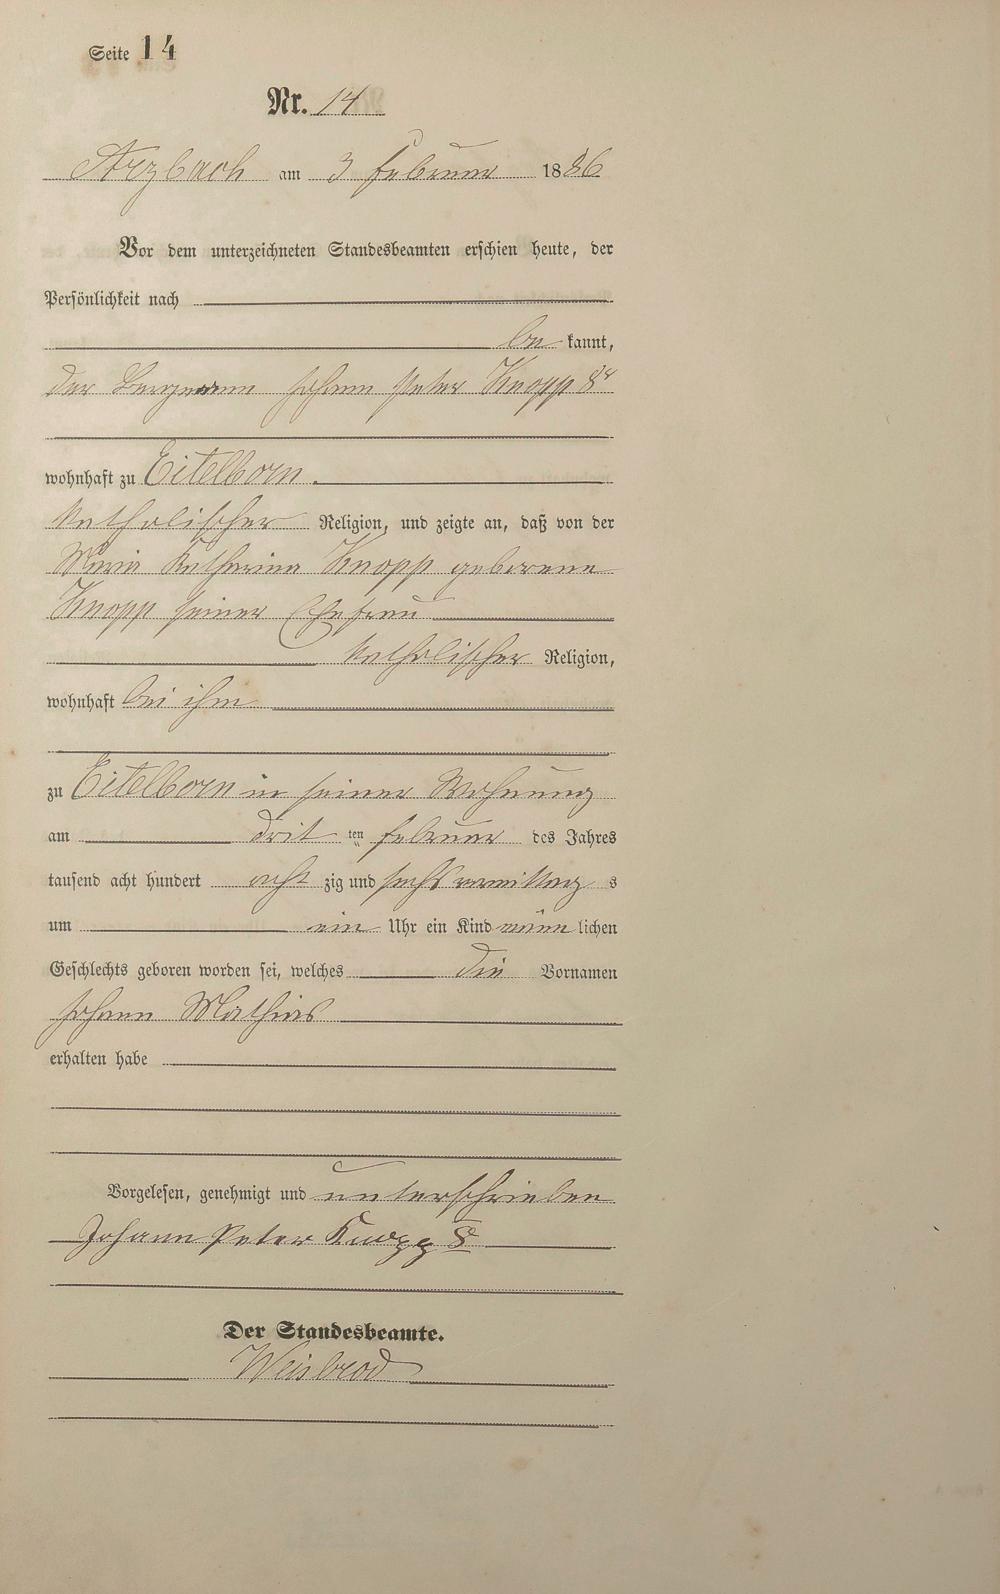 Seite 14
Nr. 14
Arzbach am 3 Februar 1886
Vor dem unterzeichneten Standesbeamten erschien heute, der
Persönlichkeit nach
be kannt,
der Bergmann Johann Peter Knopp 8r
wohnhaft zu Eitelborn.
katholischer Religion, und zeigte an, daß von der
Maria Katharina Knopp geborene
Knopp seiner Ehefrau
katholischer Religion,
wohnhaft bei ihm
zu Eitelborn in seiner Wohnung
am dritten Februar des Jahres
tausend acht hundert achtzig und sechs vormittags
um ein Uhr ein Kind männlichen
Geschlechts geboren worden sei, welches die Vornamen
Johann Mathias
erhalten habe
Vorgelesen, genehmigt und unterschrieben
Johann Peter Knopp 8
Der Standesbeamte.
Weisbrod